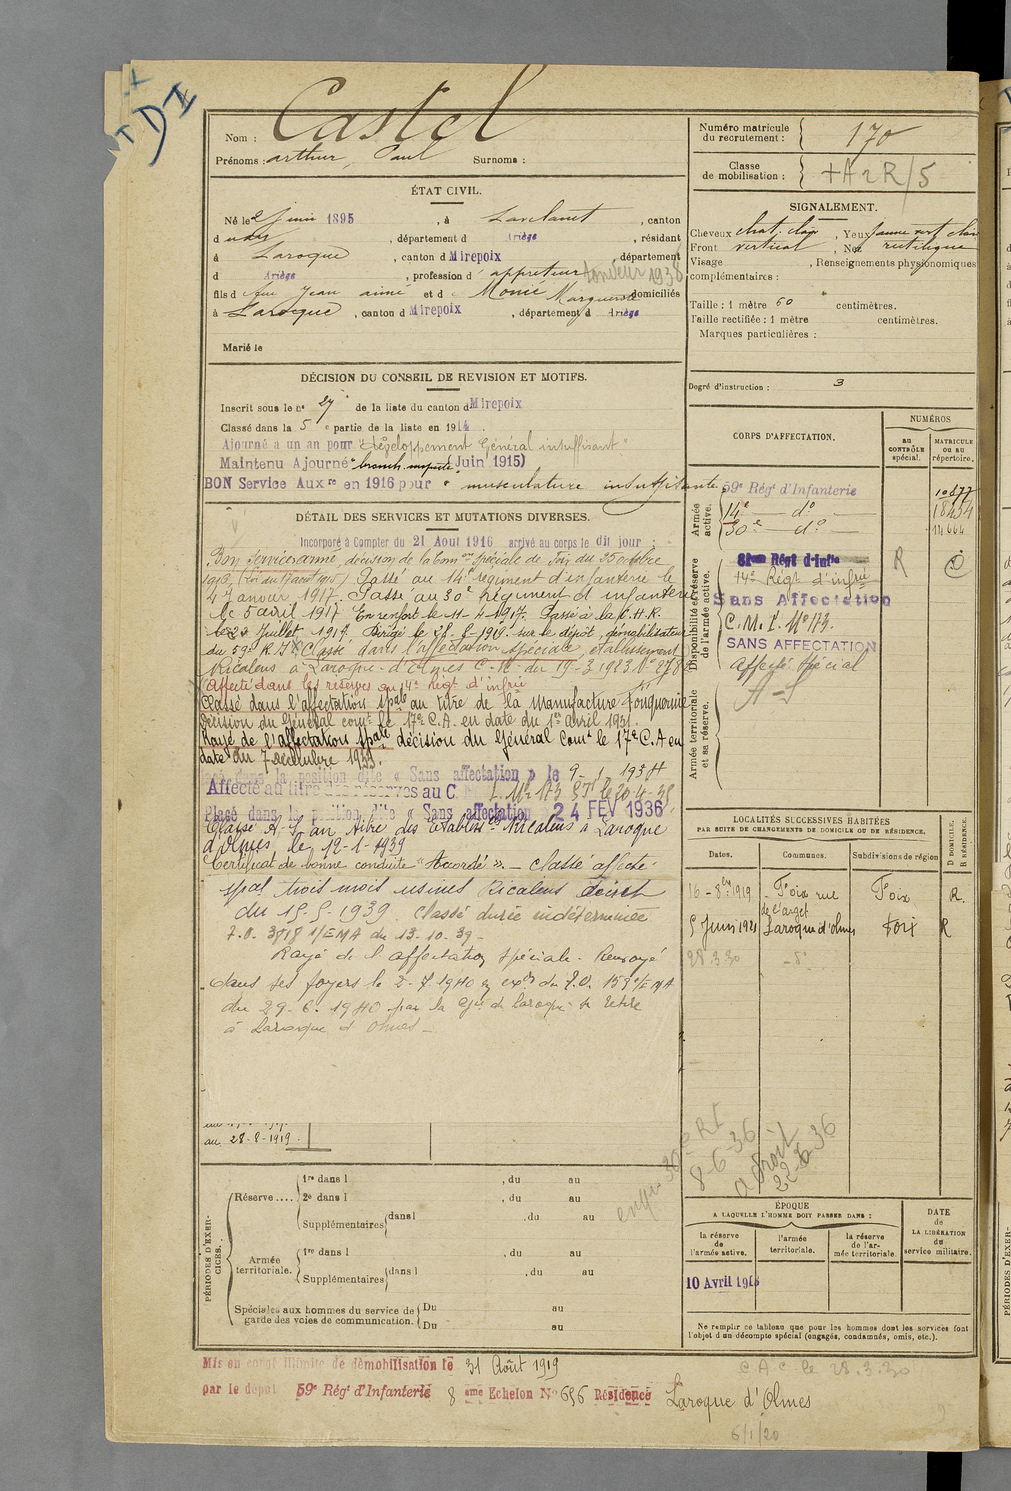 T D I
Nom : Castel
Prénoms : arthur, Paul Surnoms :
ÉTAT CIVIL.
Né le 2 juin 1895, à Lavelanet, canton
d udit, département d Ariège, résidant
à Laroque, canton d Mirepoix département
d Ariège, profession d' appréteur tondeur 1938
fils d feu Jean aimé et d Monié Marguerite domiciliés
à Laroque, canton d Mirepoix, département d Ariège
Marié le
DÉCISION DU CONSEIL DE REVISION ET MOTIFS.
Inscrit sous le n° 27 de la liste du canton d Mirepoix
Classé dans la 5e partie de la liste en 1914.
Ajourné a un an pour "développement Général insuffisant"
Maintenu Ajourné "bronch. suspecte" (Juin 1915)
BON Service Auxre en 1916 pour "musculature insuffisante"
DÉTAIL DES SERVICES ET MUTATIONS DIVERSES.
Incorporé à Compter du 21 Aout 1916 arrivé au corps le dit jour :
Bon Service armé, décision de la Comon Spéciale de Foix du 25 octobre
1916, (Loi du 17 aout 1915) Passé au 14e régiment d'infanterie le
27 janvier 1917. Passé au 30e Régiment d'infanterie
le 5 avril 1917 En renfort le 11-4-1917. Passé à la C.H.R.
le 22 Juillet 1917. Dirigé le 28-8-1919 sur le dépôt démobilisateur
du 59e R.I. Classé dans l'affectation spéciale, établissement
Ricalens à Laroque-d'Olmes C-M du 19-3-1923 N° 278
Affecté dans les réserves au 14e Régt d'infrie
Classé dans l'affectation spale au titre de la Manufacture Fonquernie
Décision du Général comt le 17e C.A. en date du 1er avril 1931.
Rayé de l'affectation spale décision du Général Comt le 17e C.A en
date du 7 décembre 1933.
dans la position dite « Sans affectation » le 9-1-1934
Affecté au titre des réserves au C. M. I. N° 173 le 20-4-35
Placé dans la position dite « Sans affectation » 24 FEV 1936
Classé A-S au titre des Etabliss ts Ricalens à Laroque
d'Olmes, le 12-1-1939
Certificat de bonne conduite "Accordé". - Classé affecté
spal trois mois usines Ricalens décret
du 15-5-1939. Classé durée indéterminée
7.0. 3818 1/EMA du 13-10-39-
Rayé de l'affectation spéciale. Renvoyé
dans ses foyers le 2-7-1940 en exon du 7.0. 1531/EMA
du 29-6-1940 par la Gie de Laroque se retire
à Laroque d'Olmes -
au 28-8-1919
PÉRIODES D'EXERCICES.
Réserve....
1re dans l , du au
2e dans l , du au
Supplémentaires dans l , du au
Armée territoriale.
1re dans l , du au
Supplémentaires dans l , du au
Spéciales aux hommes du service de garde des voies de communication.
Du au
Du au
Mis en congé illimité de démobilisation le 31 Août 1919
par le dépôt 59e Régt d'Infanterie 8 ème Echelon N° 656 Résidence Laroque d'Olmes
Numéro matricule du recrutement : 170
Classe de mobilisation : + A 2 R/5
SIGNALEMENT.
Cheveux chat. clair, Yeux jaune vert clair
Front vertical, Nez rectiligne
Visage , Renseignements physionomiques
complémentaires :
Taille : 1 mètre 60 centimètres.
Taille rectifiée : 1 mètre centimètres.
Marques particulières :
Degré d'instruction : 3
CORPS D'AFFECTATION.
NUMÉROS
au CONTRÔLE spécial.
MATRICULE OU AU répertoire.
Armée active.
59e Régt d'Infanterie 10877
14e do 18454
30e do 14664
Disponibilité et réserve de l'armée active.
81ème Régt d'Infie
14e Régt d'infrie R
Sans Affectation
C.M.I. N° 173.
SANS AFFECTATION
Affecté Spécial
Armée territoriale et sa réserve.
A-S
LOCALITÉS SUCCESSIVES HABITÉES
PAR SUITE DE CHANGEMENTS DE DOMICILE OU DE RÉSIDENCE.
Dates. Communes. Subdivisions de région D DOMICILE, R RÉSIDENCE.
16-8bre 1919 Foix rue de l'arget Foix R.
5 Juin 1921 Laroque d'olmes Foix R
28.3.30 - do
30e RI
8-6-36
a droit
22-6-36
ÉPOQUE
A LAQUELLE L'HOMME DOIT PASSER DANS :
la réserve de l'armée active.
l'armée territoriale.
la réserve de l'armée territoriale.
DATE de LA LIBÉRATION du service militaire.
10 Avril 1918
Ne remplir ce tableau que pour les hommes dont les services font
l'objet d'un décompte spécial (engagés, condamnés, omis, etc.).
C.A.C. le 28.3.30
6/1/20
PÉRIODES D'EXER-